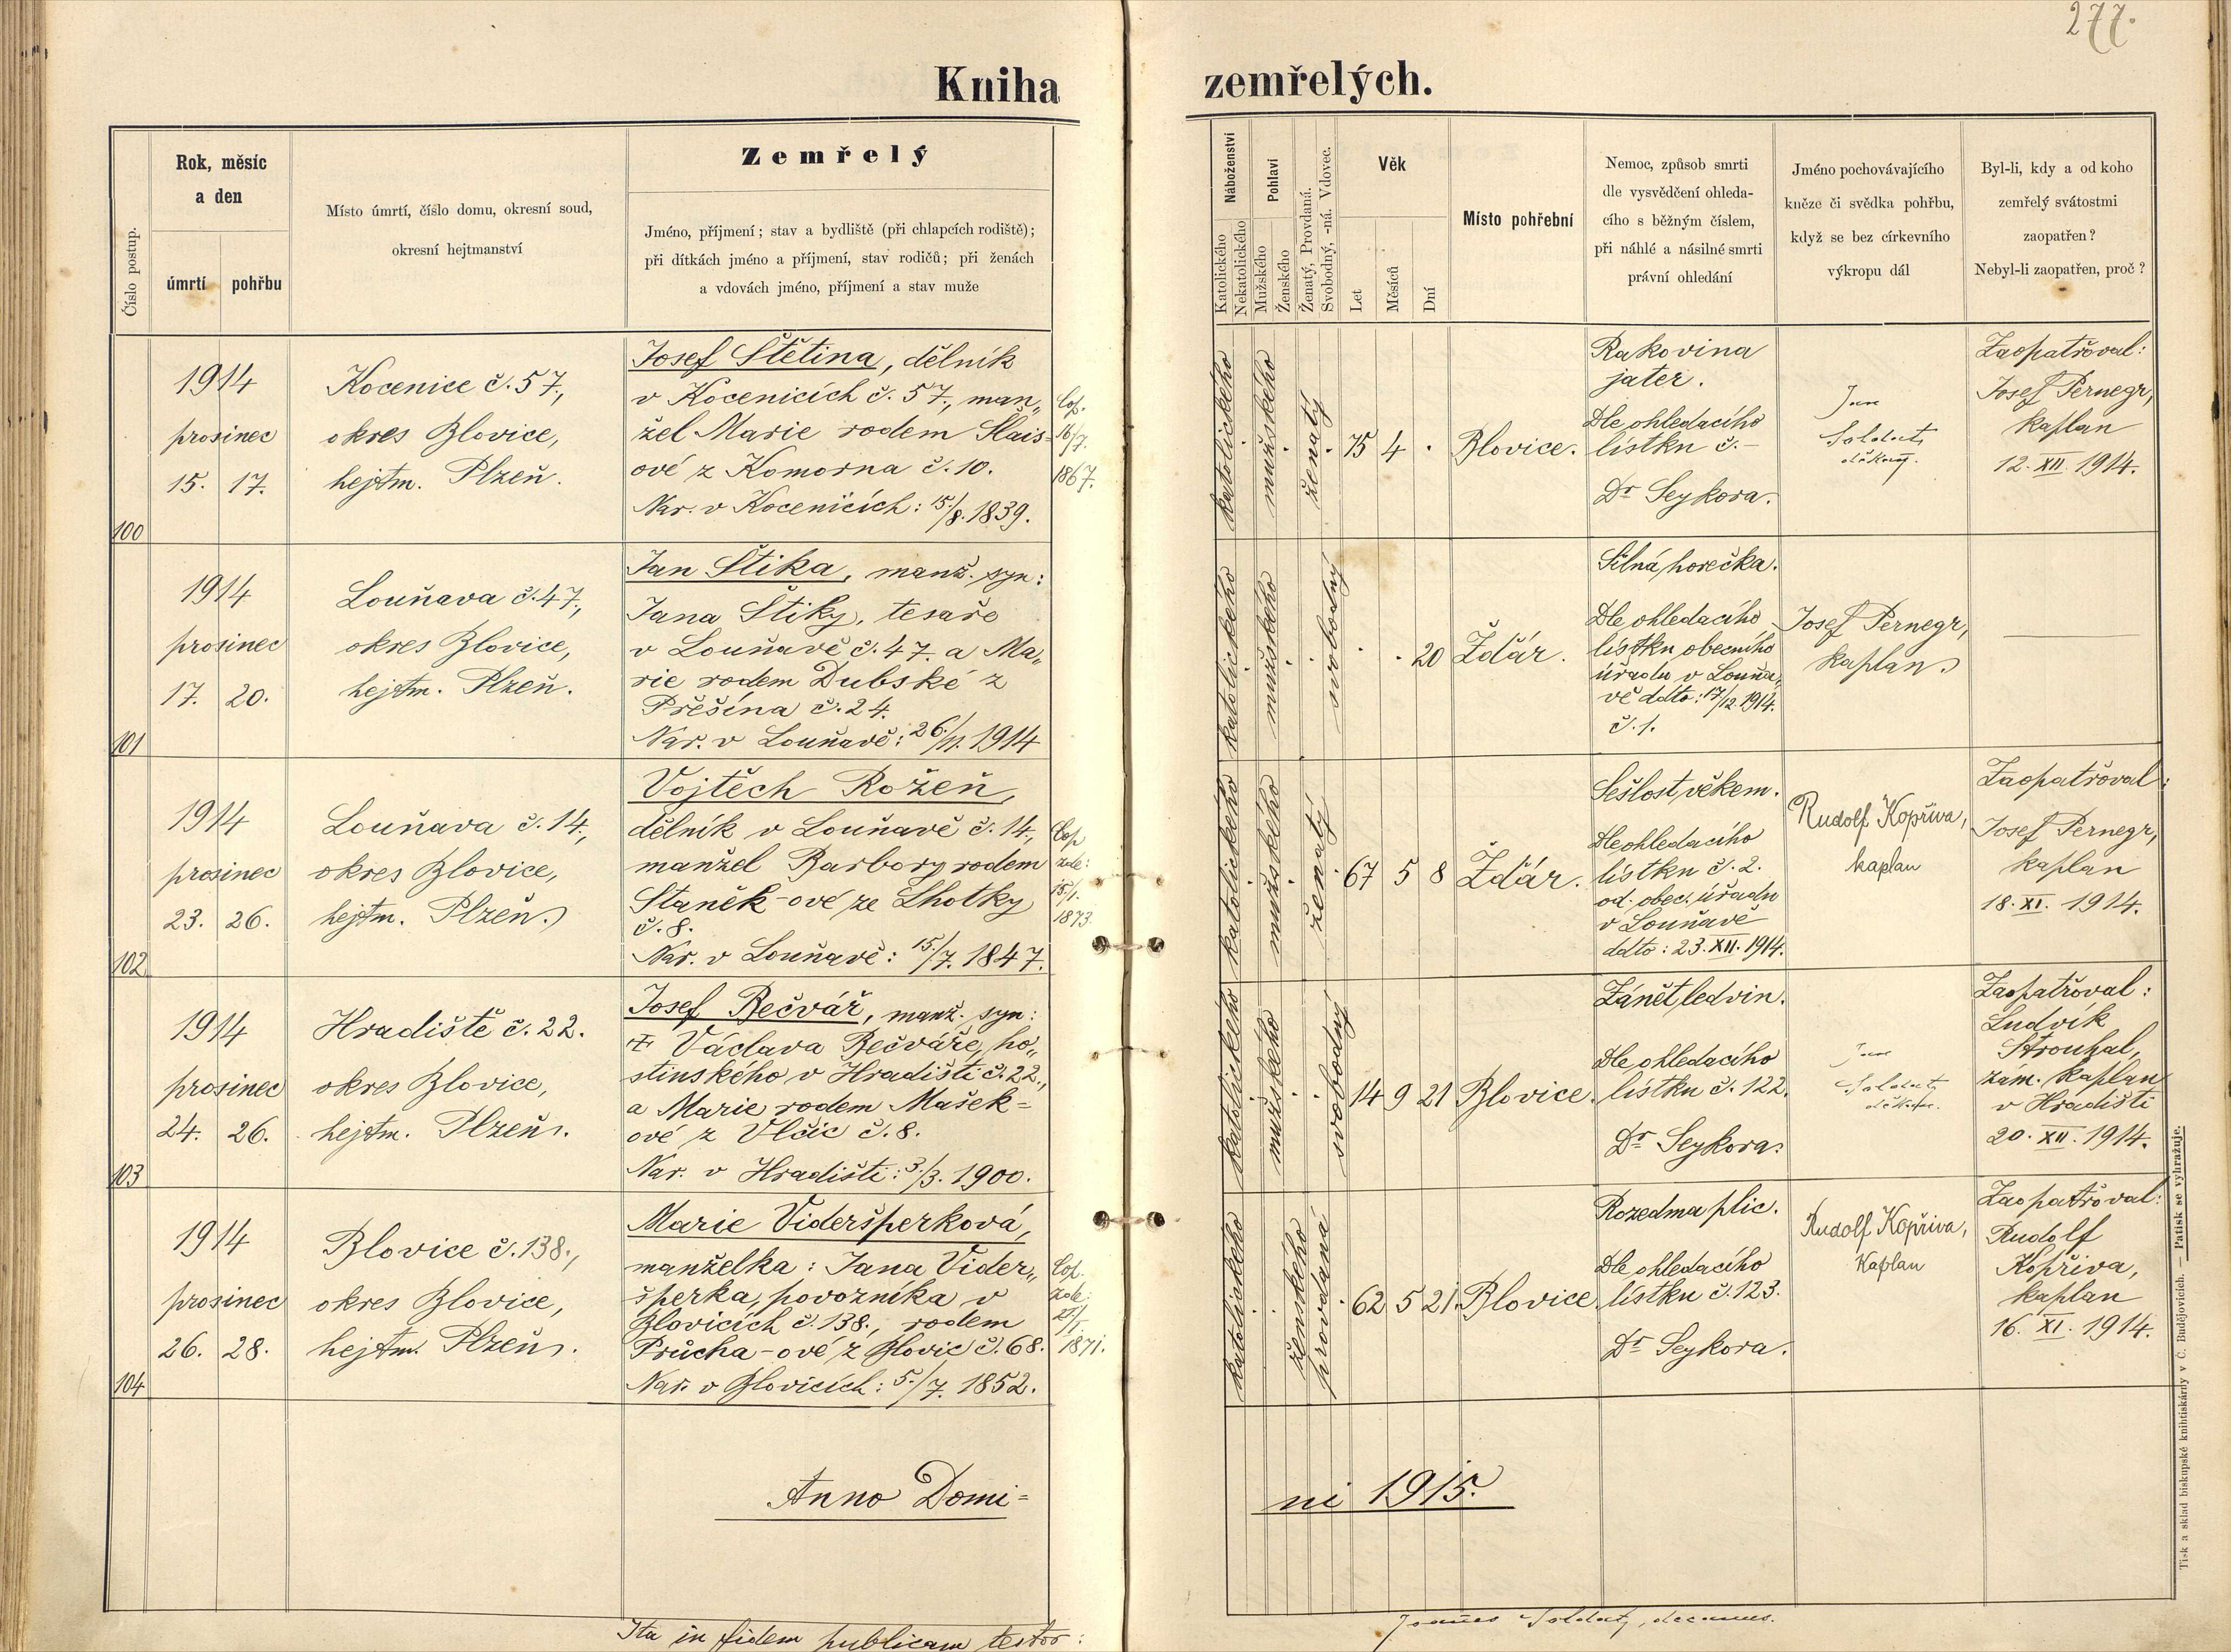 277.
Kniha zemřelých.
Číslo postup.
Rok, měsíc
a den
úmrtí
pohřbu
Místo úmrtí, číslo domu, okresní soud,
okresní hejtmanství
Zemřelý
Jméno, příjmení; stav a bydliště (při chlapcích rodiště);
při dítkách jméno a příjmení, stav rodičů; při ženách
a vdovách jméno, příjmení a stav muže
Náboženství
Katolického
Nekatolického
Pohlaví
Mužského
Ženského
Ženatý, Provdaná.
Svobodný, -ná. Vdovec.
Věk
Let
Měsíců
Dní
Místo pohřební
Nemoc, způsob smrti
dle vysvědčení ohleda-
cího s běžným číslem,
při náhlé a násilné smrti
právní ohledání
Jméno pochovávajícího
kněze či svědka pohřbu,
když se bez církevního
výkropu dál
Byl-li, kdy a od koho
zemřelý svátostmi
zaopatřen?
Nebyl-li zaopatřen, proč?
100
1914
prosinec
15. 17.
Kocenice č. 57.,
okres Blovice,
hejtm. Plzeň.
Josef Štětina, dělník
v Kocenicích č. 57., man„
žel Marie rodem Slais=
ové z Komorna č. 10.
Nar. v Kocenicích: 15./8. 1839.
Cop.
16/7.
1867.
katolického
mužského
ženatý
75 4 .
Blovice.
Rakovina
jater.
Dle ohledacího
lístku č. -
Dr Seykora.
Soldát
děkan.
Zaopatřoval:
Josef Pernegr,
kaplan
12. XII. 1914.
101
1914
prosinec
17. 20.
Louňava č. 47.,
okres Blovice,
hejtm. Plzeň.
Jan Štika, manž. syn:
Jana Štiky, tesaře
v Louňavě č. 47. a Ma„
rie rodem Dubské z
Přešína č. 24.
Nar. v Louňavě: 26./11. 1914
katolického
mužského
svobodný
. . 20
Ždár.
Silná horečka.
Dle ohledacího
lístku obecního
úřadu v Louňa„
vě ddto: 17/12. 1914.
č. 1.
Josef Pernegr,
kaplan
102
1914
prosinec
23. 26.
Louňava č. 14.,
okres Blovice,
hejtm. Plzeň.
Vojtěch Rožeň,
dělník v Louňavě č. 14.,
manžel Barbory rodem
Staněk-ové ze Lhotky
č. 8.
Nar. v Louňavě: 15./7. 1847.
Cop
zde:
15./1.
1873.
katolického
mužského
ženatý
67 5 8
Ždár.
Sešlost věkem.
Dle ohledacího
lístku č. 2.
od. obec. úřadu
v Louňavě
ddto: 23. XII. 1914.
Rudolf Kopřiva,
kaplan
Zaopatřoval:
Josef Pernegr,
kaplan
18. XI. 1914.
103
1914
prosinec
24. 26.
Hradiště č. 22.
okres Blovice,
hejtm. Plzeň.
Josef Bečvář, manž. syn:
Václava Bečváře, ho„
stinského v Hradišti č. 22.,
a Marie rodem Mašek=
ové z Vlčic č. 8.
Nar. v Hradišti: 3./3. 1900.
katolického
mužského
svobodný
14 9 21
Blovice.
Zánět ledvin.
Dle ohledacího
lístku č. 122.
Dr Seykora.
Soldát
děkan.
Zaopatřoval:
Ludvík
Strouhal,
zám. kaplan
v Hradišti
20. XII. 1914.
104
1914
prosinec
26. 28.
Blovice č. 138.,
okres Blovice,
hejtm. Plzeň.
Marie Videršperková,
manželka: Jana Vider„
šperka, povozníka v
Blovicích č. 138., rodem
Průcha-ové z Blovic č. 68.
Nar. v Blovicích: 5./7. 1852.
Cop.
zde:
1871.
katolického
ženského
provdaná
62 5 21.
Blovice
Rozedma plic.
Dle ohledacího
lístku č. 123.
Dr Seykora.
Rudolf Kopřiva,
Kaplan
Zaopatřoval:
Rudolf
Kopřiva,
kaplan
16. XI. 1914.
Anno Domi=
ni 1915.
Ita in fidem publicam testor:
Joannes Soldát, decanus.
Tisk a sklad biskupské knihtiskárny v Č. Budějovicích. — Patisk se vyhražuje.